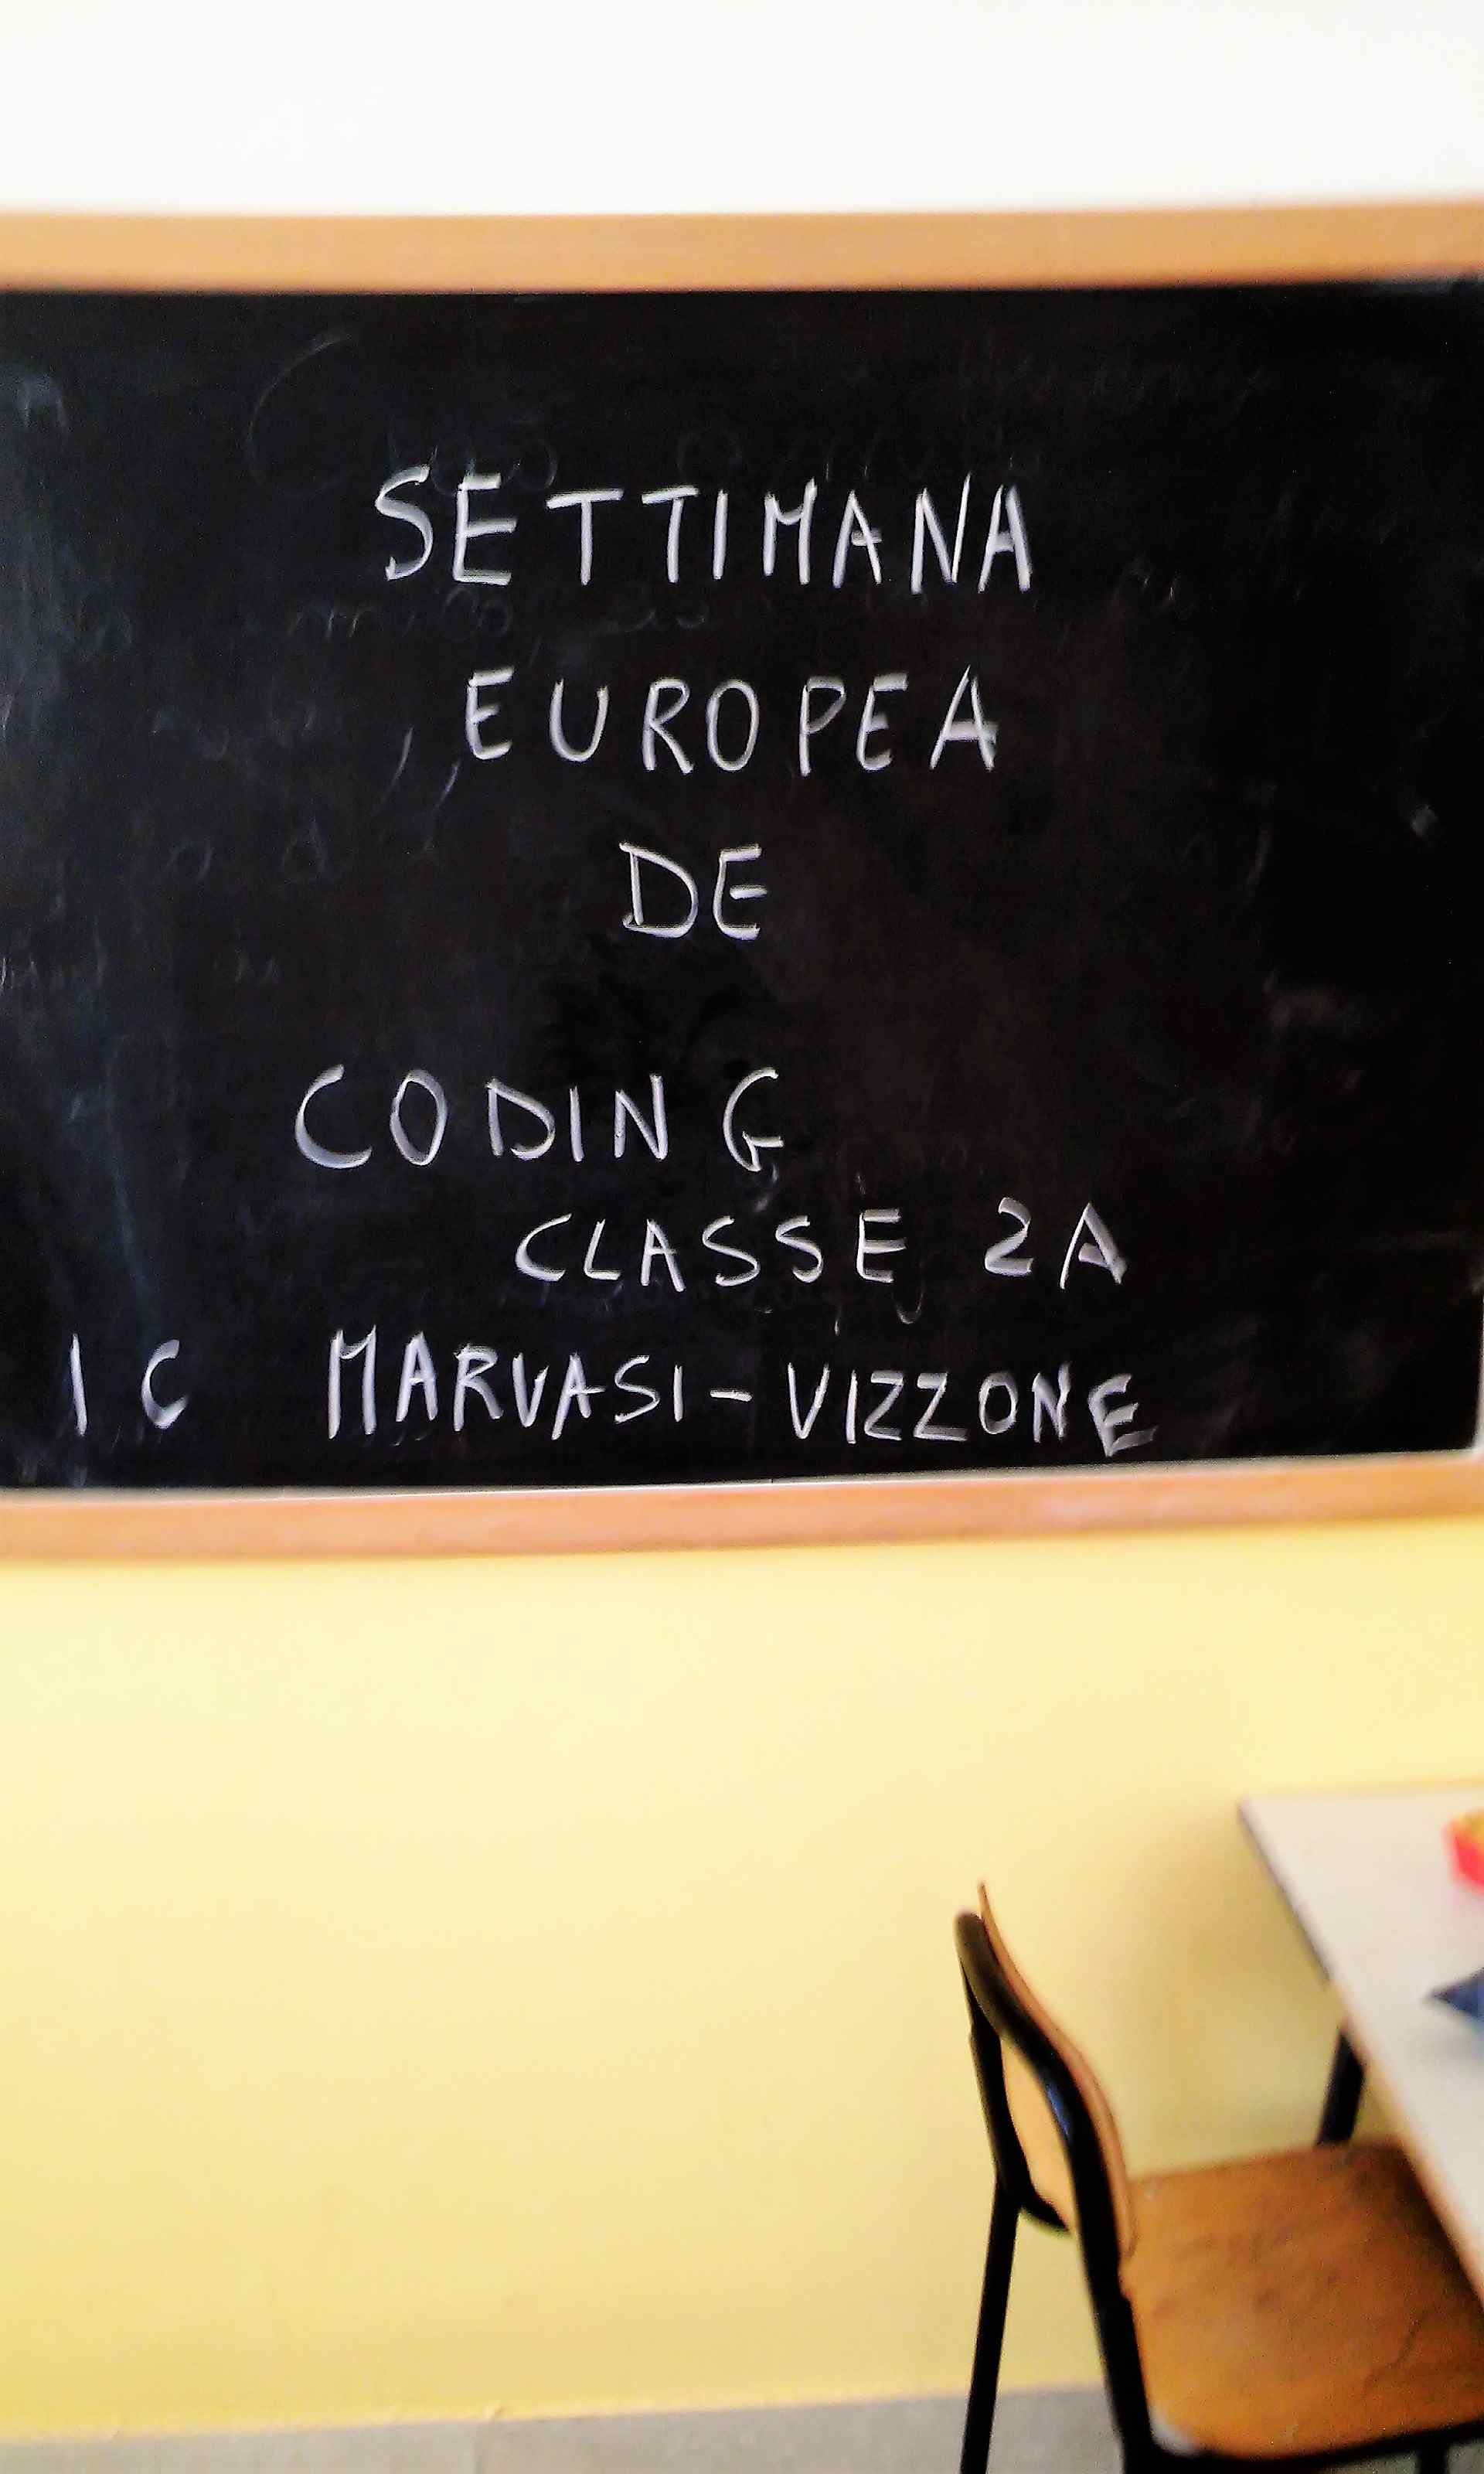 SETTIMANA
EUROPEA
DE
CODING
CLASSE 2A
IC MARVASI-VIZZONE